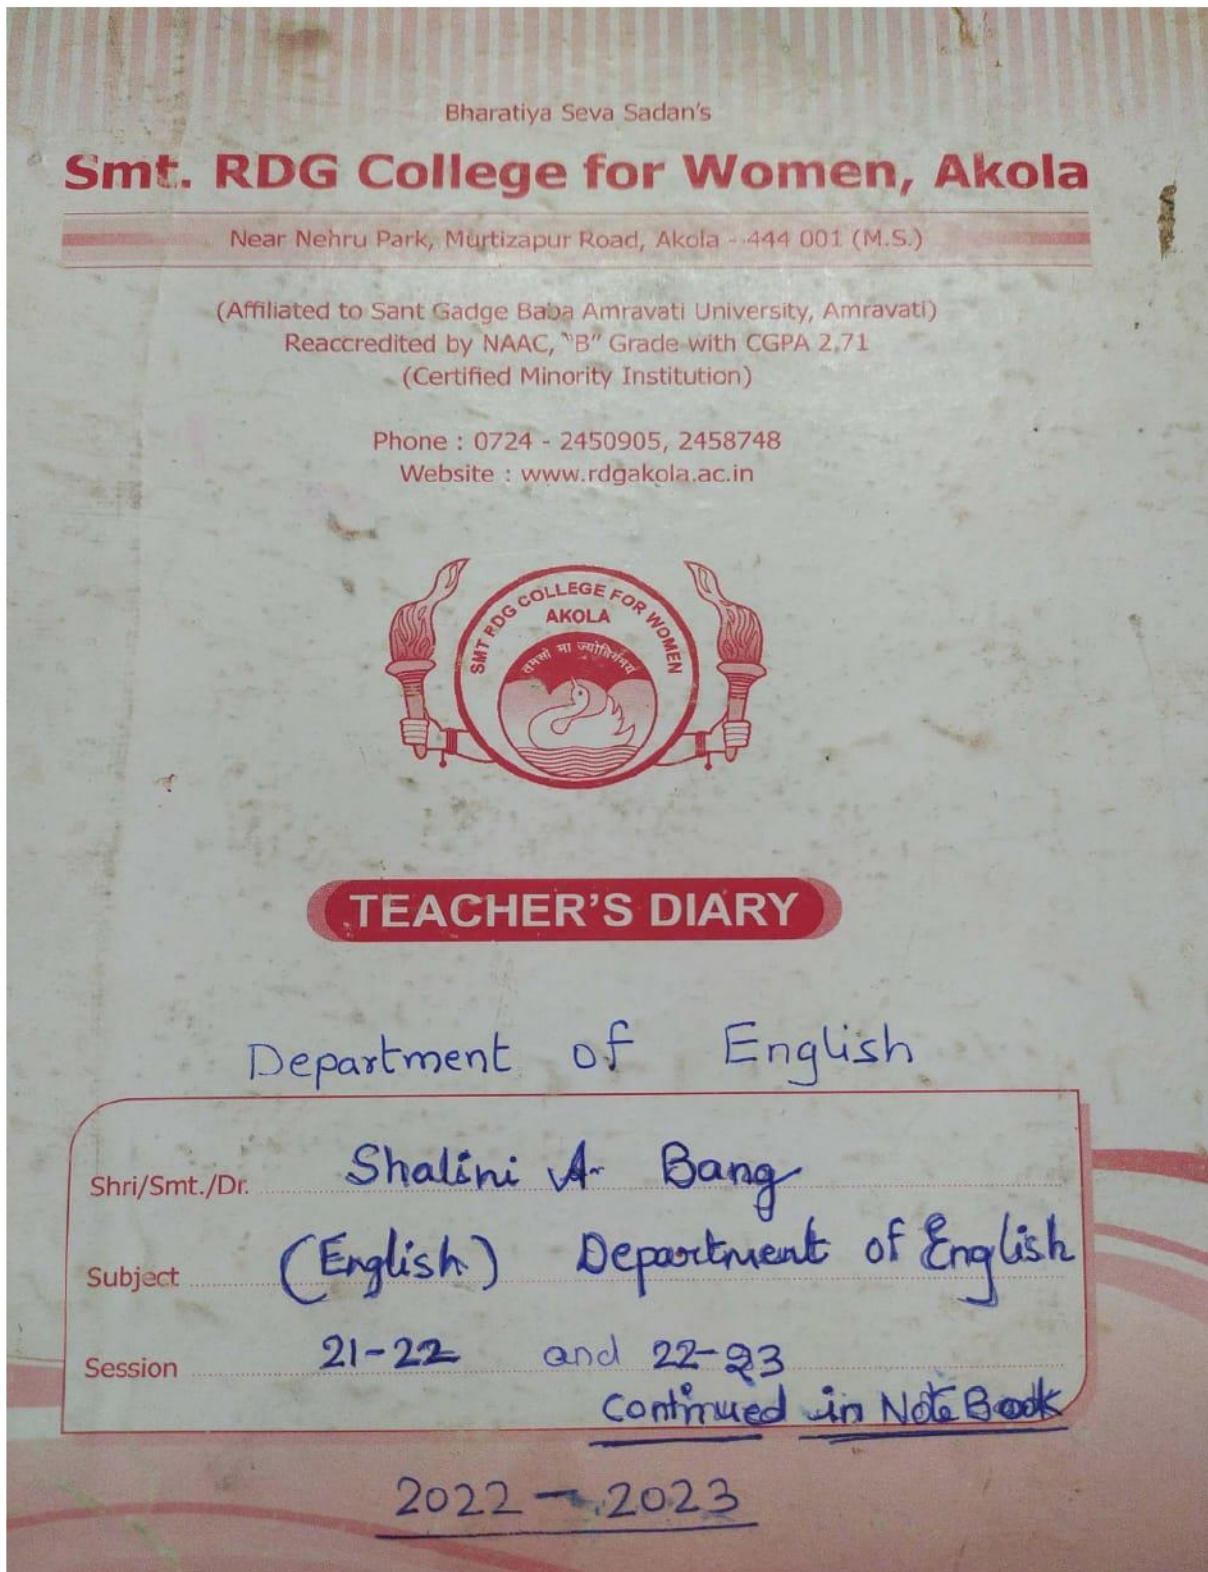 Bharatiya Seva Sadan's
Smt. RDG College for Women, Akola
Near Nehru Park, Murtizapur Road, Akola - 444 001 (M.S.)
(Affiliated to Sant Gadge Baba Amravati University, Amravati)
Reaccredited by NAAC, "B" Grade with CGPA 2.71
(Certified Minority Institution)
Phone : 0724 - 2450905, 2458748
Website : www.rdgakola.ac.in
SMT RDG COLLEGE FOR WOMEN
AKOLA
तमसो मा ज्योतिर्गमय
TEACHER'S DIARY
Department of English
Shri/Smt./Dr. Shalini A. Bang
Subject (English) Department of English
Session 21-22 and 22-23
Continued in Note Book
2022 - 2023